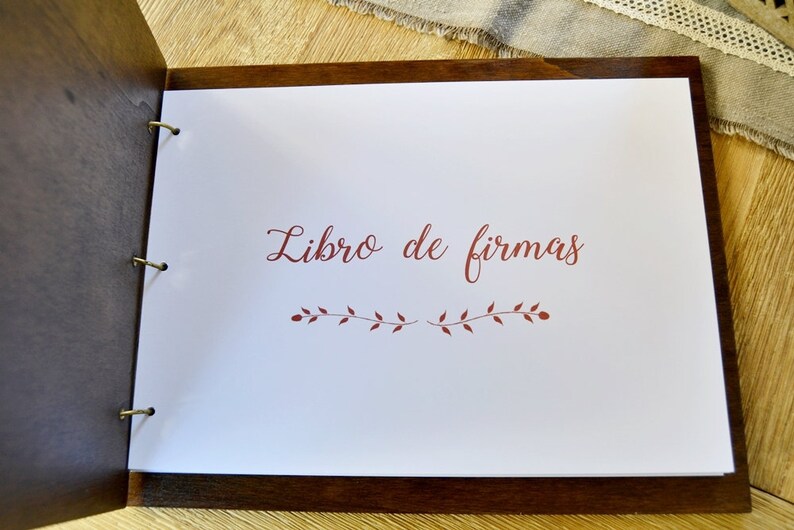 Libro de firmas